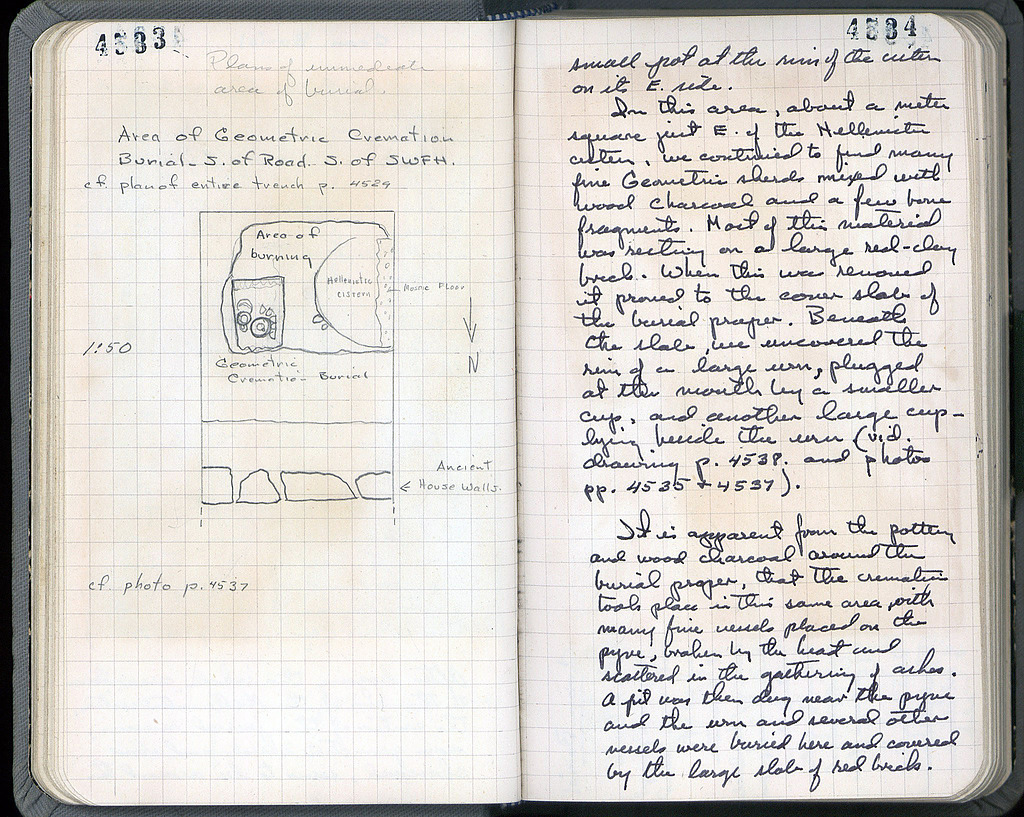 4533
Plan of immediate
area of burial.
Area of Geometric Cremation
Burial - S. of Road. S. of SWFH.
cf. plan of entire trench p. 4529
Area of
burning
Hellenistic
cistern
Mosaic Floor
N
1:50
Geometric
Cremation Burial
Ancient
House Walls.
cf. photo p. 4537
4534
small pot at the rim of the cistern
on its E. side.
In this area, about a meter
square just E. of the Hellenistic
cistern, we continued to find many
fine Geometric sherds mixed with
wood charcoal and a few bone
fragments. Most of this material
was resting on a large red-clay
brick. When this was removed
it proved to the cover slab of
the burial proper. Beneath
the slab, we uncovered the
rim of a large urn, plugged
at the mouth by a smaller
cup, and another large cup -
lying beside the urn (vid.
drawing p. 4538. and photos
pp. 4535 + 4537).
It is apparent from the pottery
and wood charcoal around the
burial proper, that the cremation
took place in this same area, with
many fine vessels placed on the
pyre, broken by the heat and
scattered in the gathering of ashes.
A pit was then dug near the pyre
and the urn and several other
vessels were buried here and covered
by the large slab of red brick.